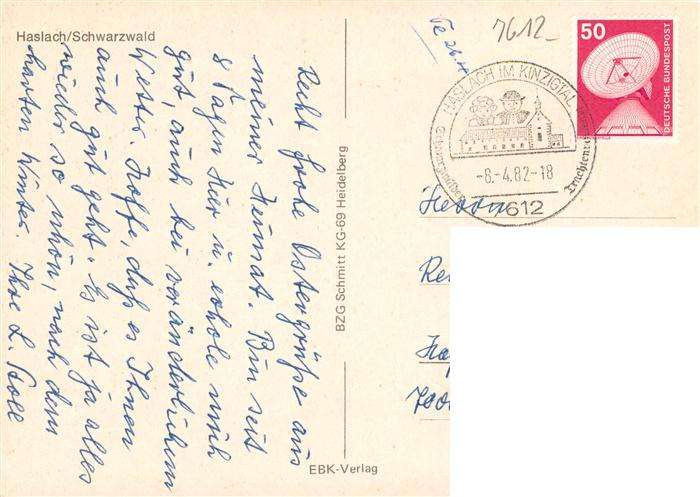 Haslach/Schwarzwald
Recht frohe Ostergrüße aus
meiner Heimat. Bin seit
8 Tagen hier u. erhole mich
gut, auch bei veränderlichem
Wetter. Hoffe, daß es Ihnen
auch gut geht. Es ist ja alles
wieder so schön, nach dem
harten Winter. Ihre L. Stoll
BZG Schmitt KG-69 Heidelberg
EBK-Verlag
7612
50
DEUTSCHE BUNDESPOST
HASLACH IM KINZIGTAL
-8.-4.82-18
7612
Herrn